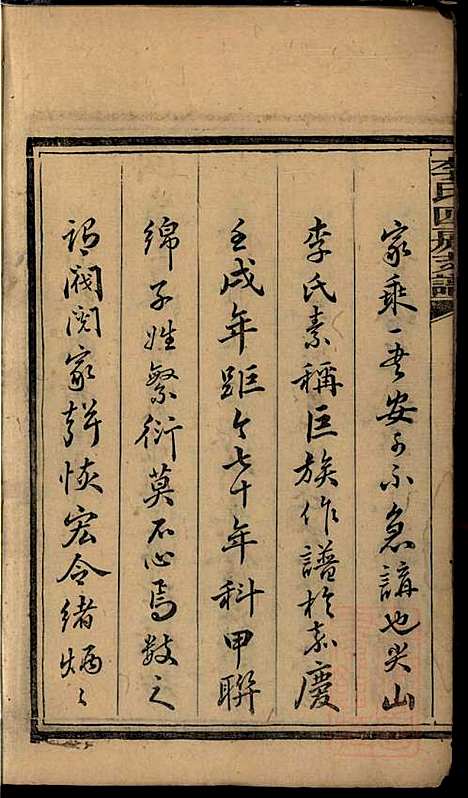 李氏四房支譜
家乘一書安可不急講也尖山
李氏素稱巨族作譜於嘉慶
壬戌年距今七十年科甲聯
綿子姓繁衍莫不心焉數之
謂閥閱家聲恢宏令緒炳之